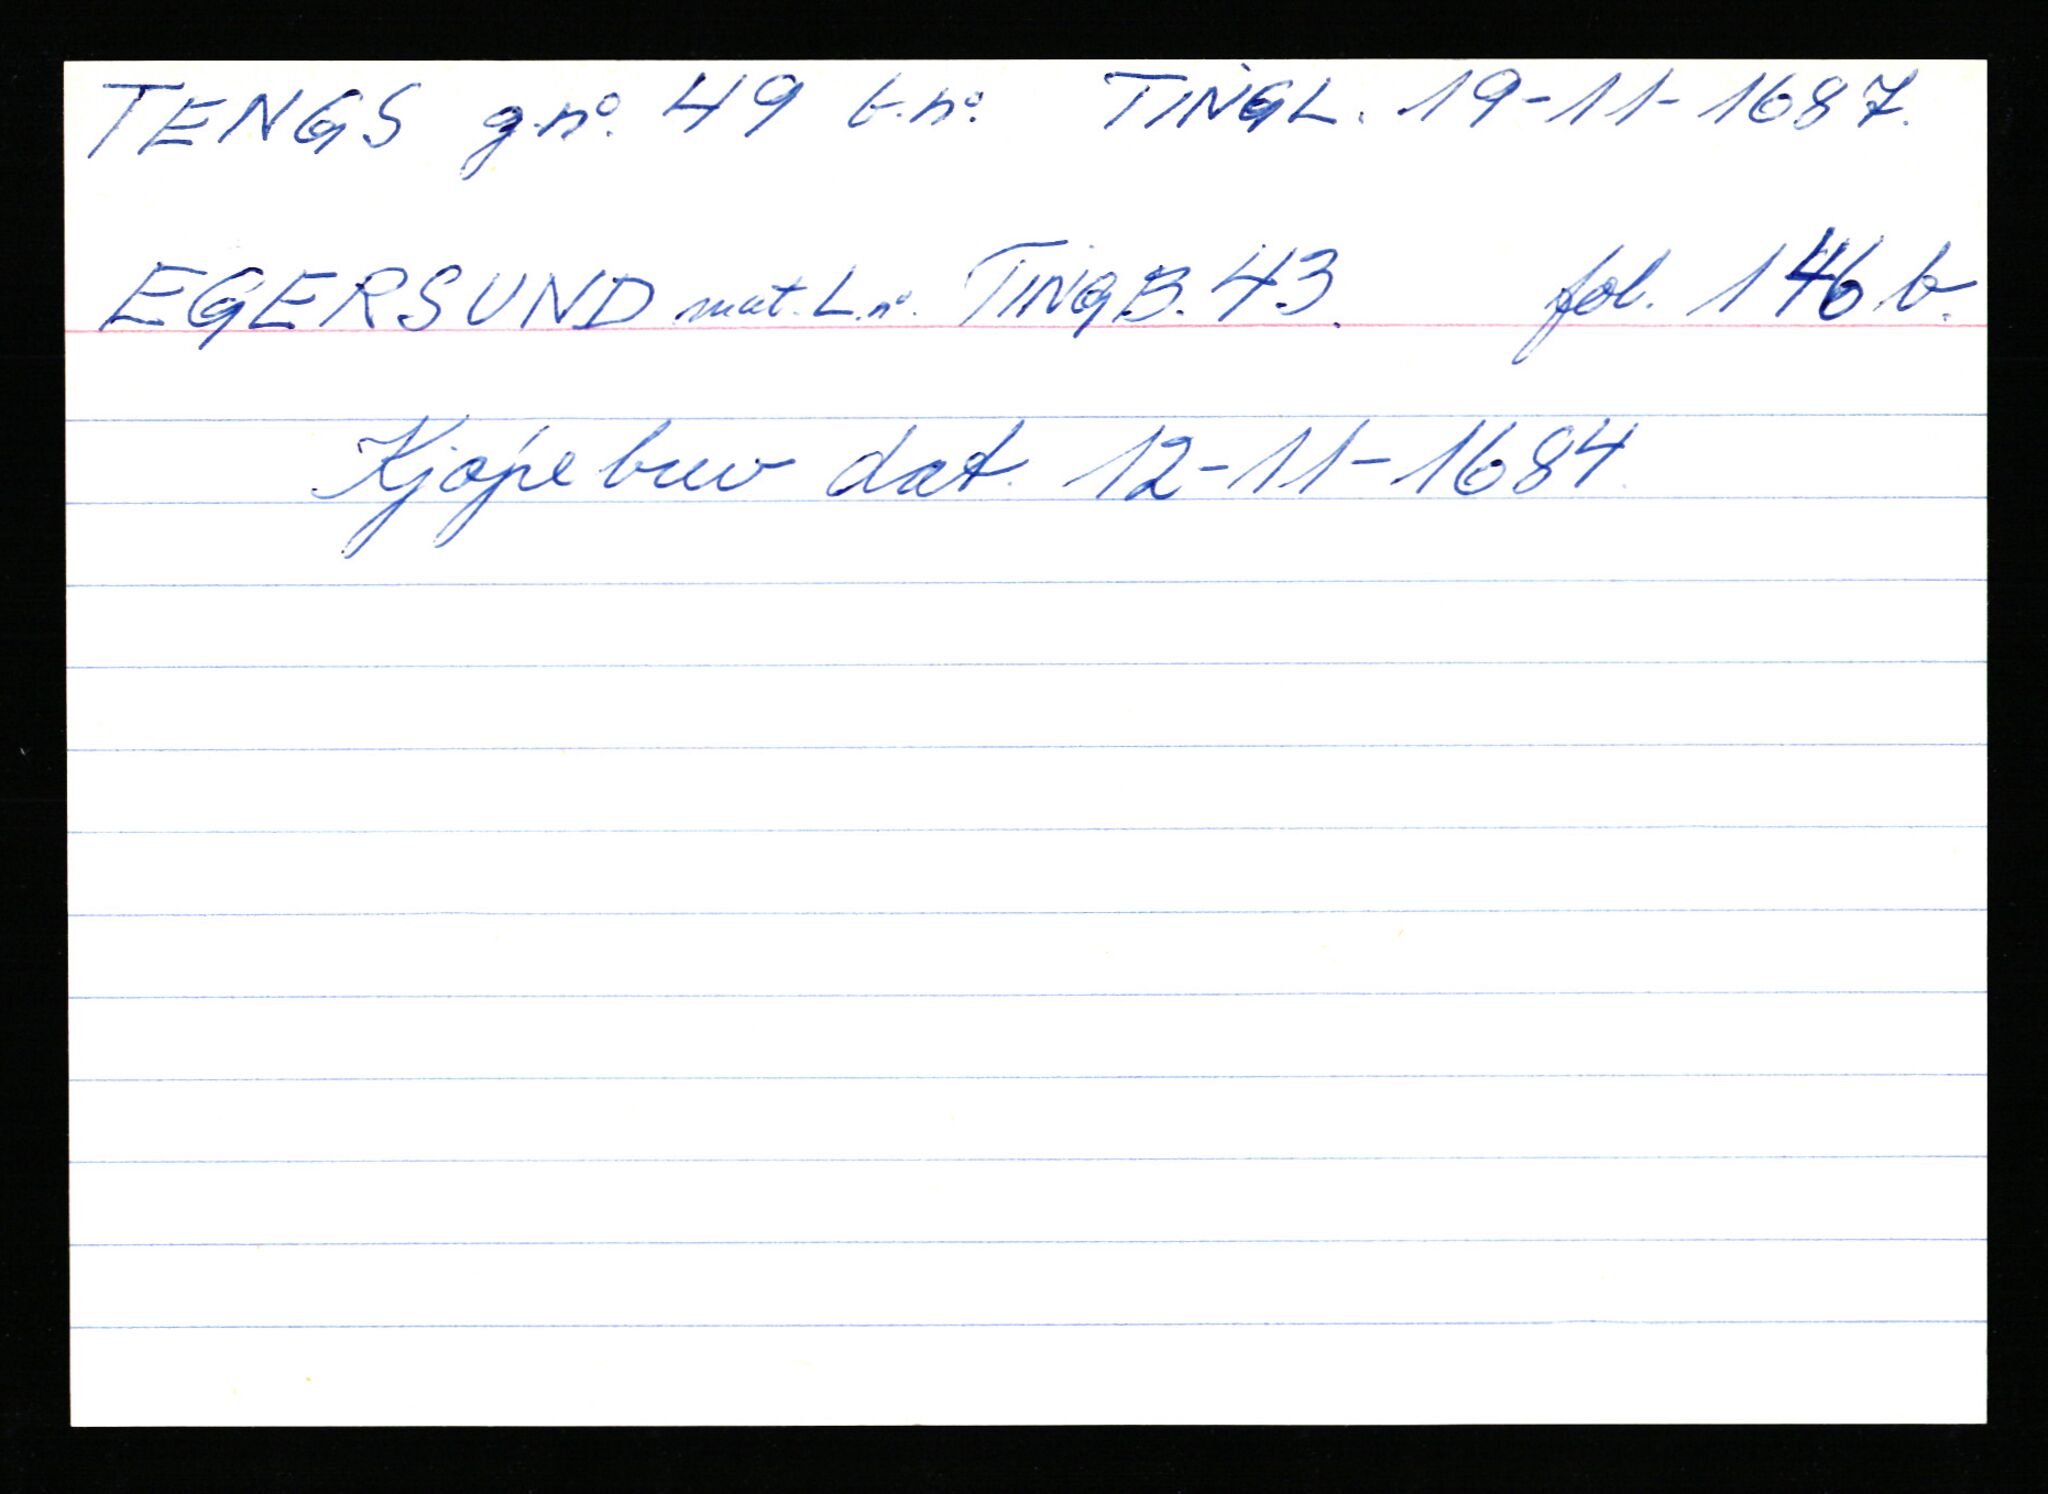 TENGS g.no. 49 b.no: TINGL. 19-11-1687.
EGERSUND mat. L.no. TINGB. 43. fol. 146 b.
Kjøpebrev dat. 12-11-1684.